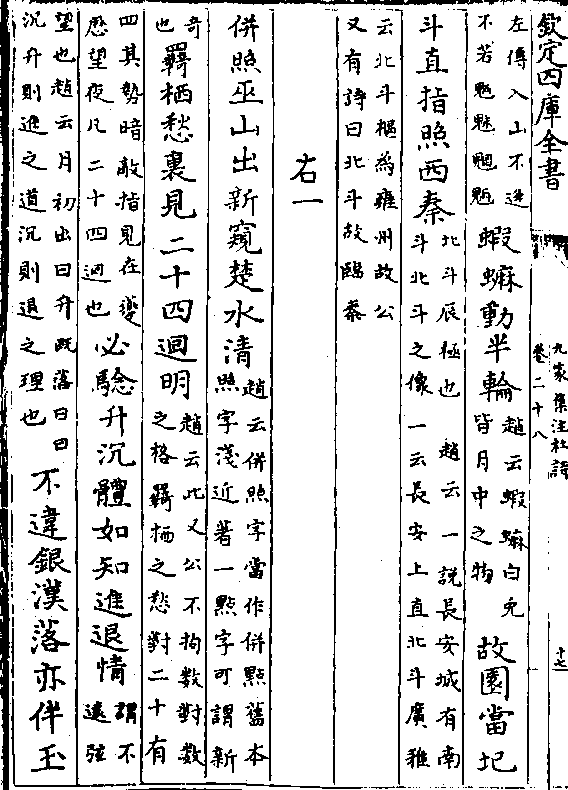 欽定四庫全書
九家集注杜詩
卷二十八
十七
左傳入山不逢
不若魑魅魍魎
蝦蟆動半輪
趙云蝦蟆白兔
皆月中之物
故園當北
斗直指照西秦
北斗辰極也 趙云一說長安城有南
斗北斗之像一云長安上直北斗廣雅
云北斗樞為雍州故公
又有詩曰北斗故臨秦
右一
併照巫山出新窺楚水清
趙云併照字當作併點舊本
照字淺近著一點字可謂新
奇
也
羇栖愁裏見二十四迴明
趙云此又公不拘數對數
之格羇栖之愁對二十有
四其勢暗敵指見在變
歷望夜凡二十四迴也
必驗升沉體如知進退情
謂不
違弦
望也趙云月初出曰升既落曰
沉升則進之道沉則退之理也
不違銀漢落亦伴玉